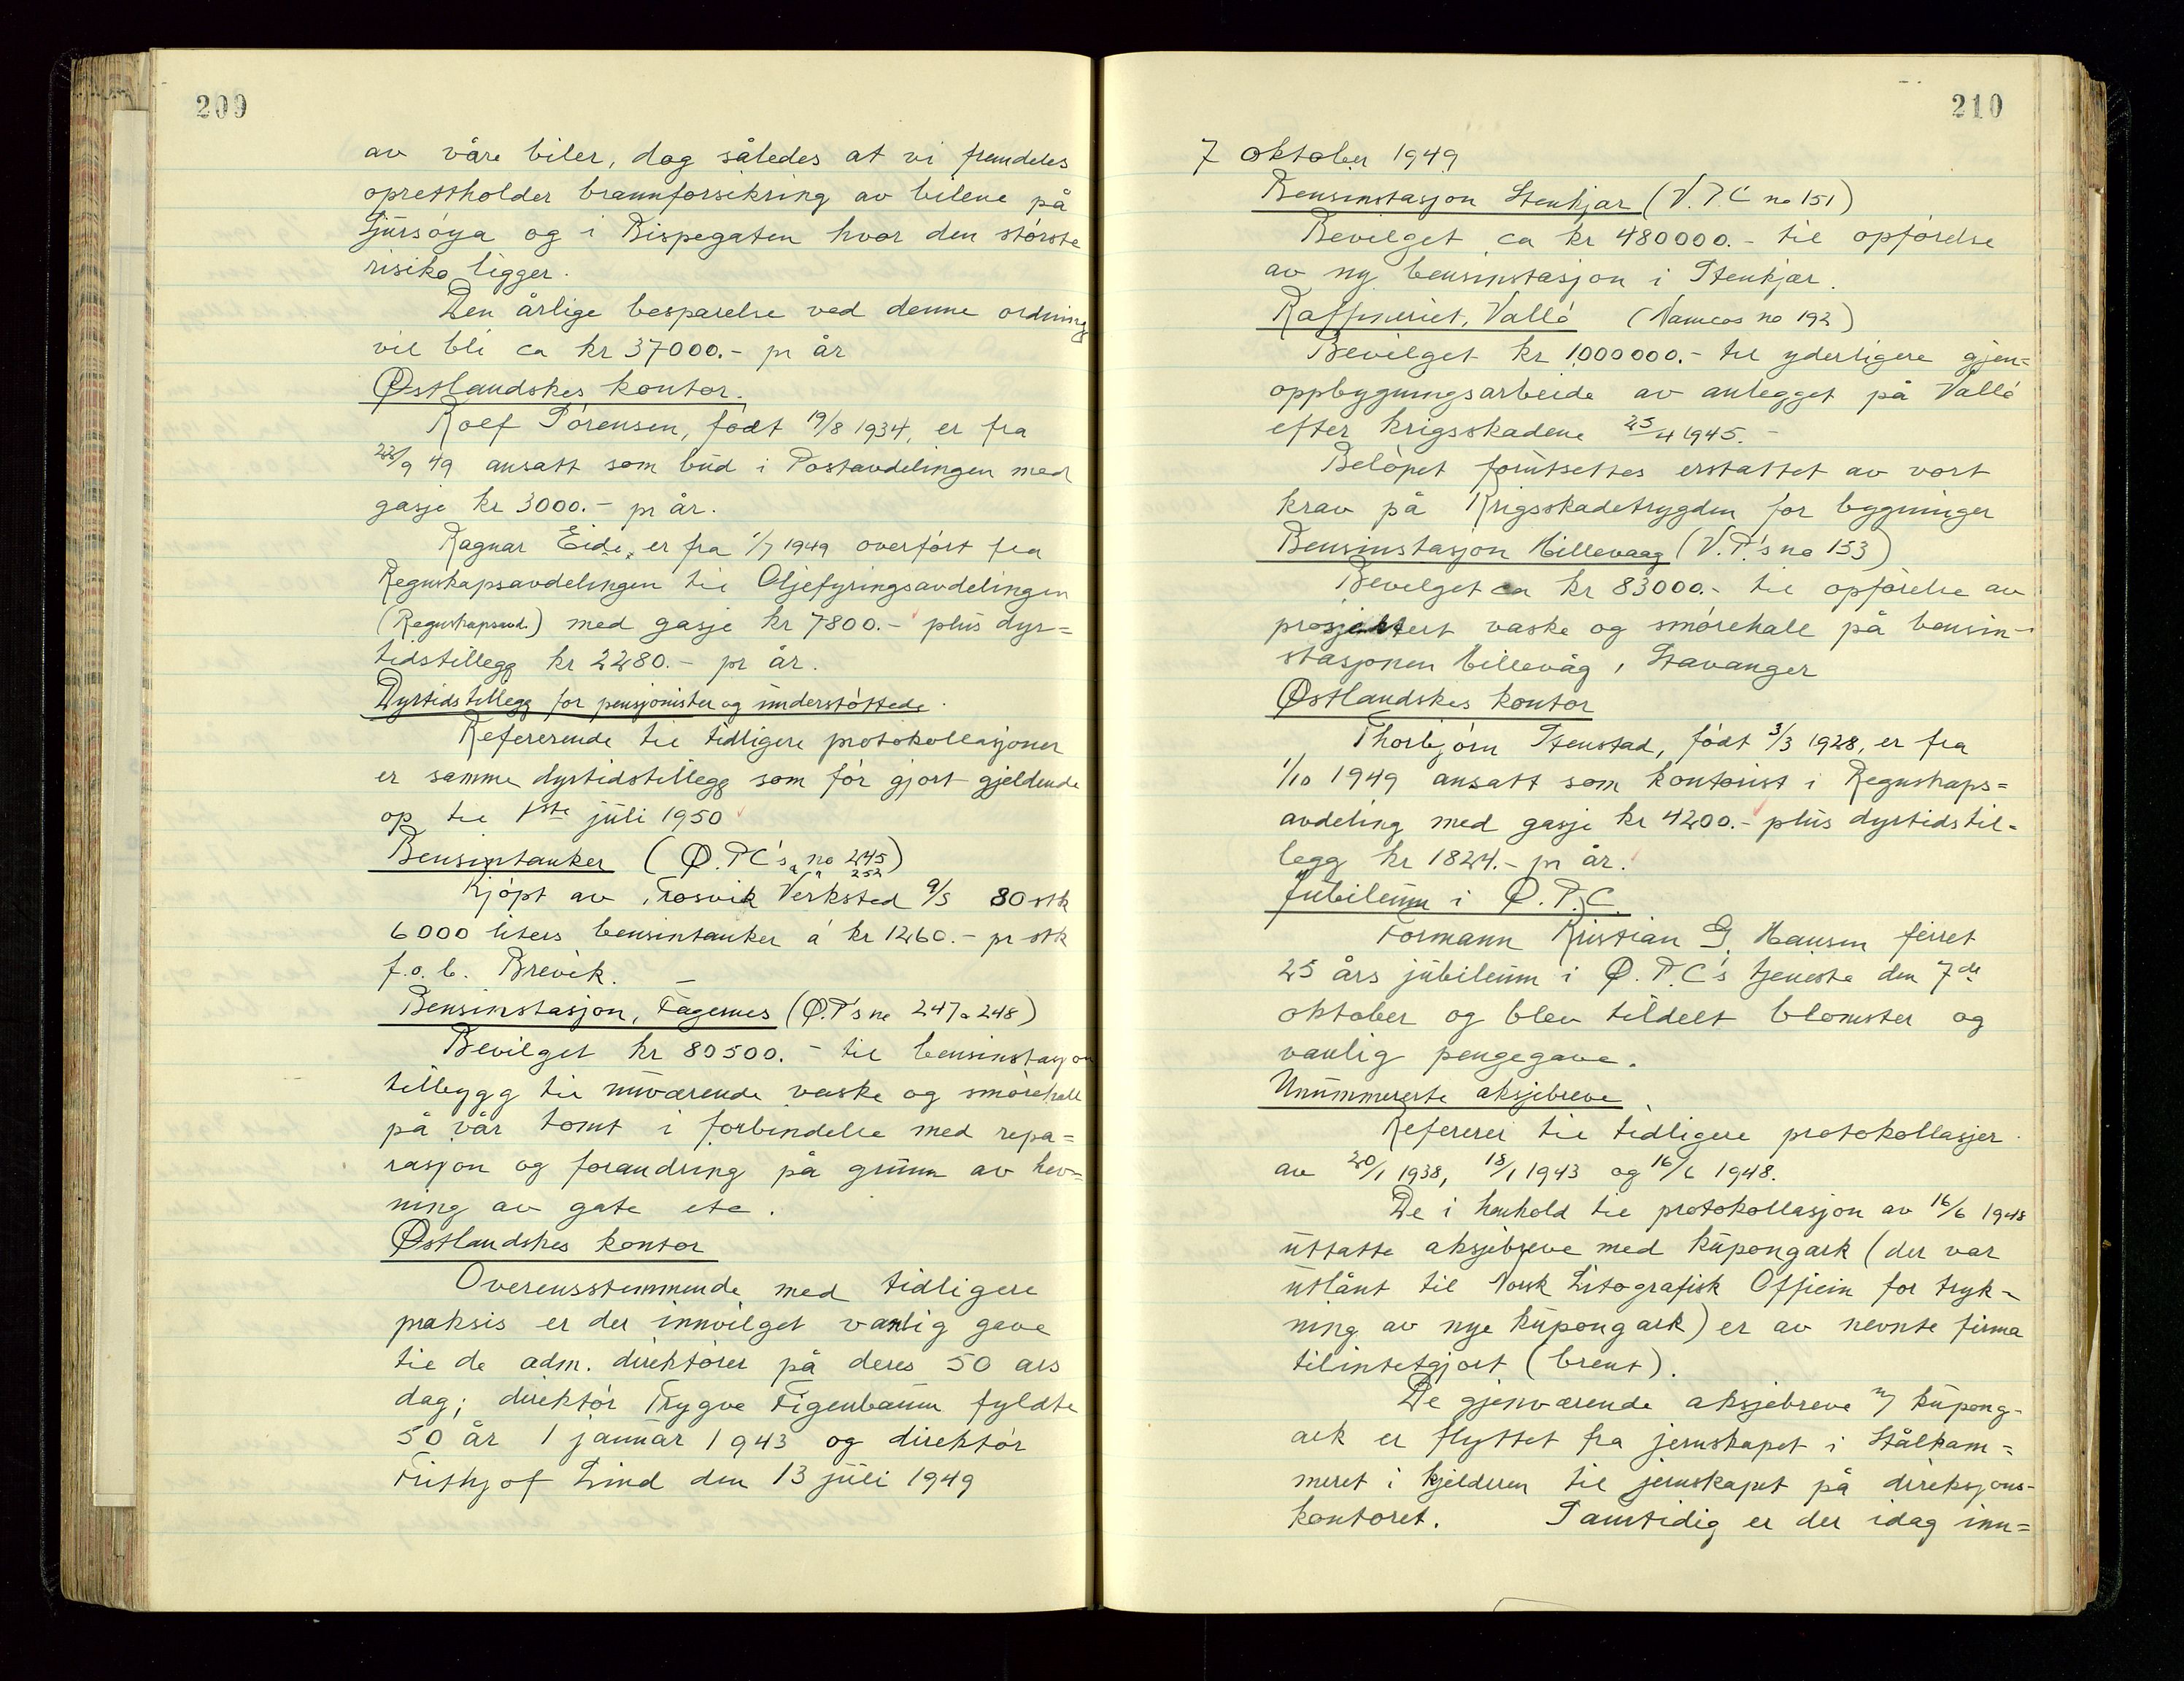 209
av våre biler, dog således at vi fremdeles
oprettholder brannforsikring av bilene på
Sjursøya og i Bispegaten hvor den største
risiko ligger.
Den årlige besparelse ved denne ordning
vil bli ca kr 37000.- pr år
Østlandskes kontor.
Rolf Sørensen, født 19/8 1934, er fra
22/9 49 ansatt som bud i Postavdelingen med
gasje kr 3000.- pr år.
Ragnar Eide, er fra 1/7 1949 overført fra
Regnskapsavdelingen til Oljefyringsavdelingen
(Regnskapsavd.) med gasje kr 7800.- plus dyr=
tidstillegg kr 2280.- pr år.
Dyrtidstillegg for pensjonister og understøttede.
Refererende til tidligere protokollasjoner
er samme dyrtidstillegg som før gjort gjeldende
op til 1ste juli 1950
Bensintanker (Ø.P.C's no 245)
" " 252
Kjøpt av Trosvik Verksted A/S 80 stk
6000 liters bensintanker á kr 1260.- pr stk
f.o.b. Brevik.
Bensinstasjon, Fagernes (Ø.P's no 247 a 248)
Bevilget kr 80500.- til bensinstasjon
tilbygg til nuværende vaske og smørehall
på vår tomt i forbindelse med repa=
rasjon og forandring på grunn av hev=
ning av gate etc.
Østlandskes kontor
Overensstemmende med tidligere
praksis er der innvilget vanlig gave
til de adm. direktører på deres 50 års
dag; direktør Trygve Figenbaum fyldte
50 år 1 januar 1943 og direktør
Frithjof Lind den 13 juli 1949
210
7 oktober 1949
Bensinstasjon Stenkjær (V.P.C no 151)
Bevilget ca kr 480000.- til opførelse
av ny bensinstasjon i Stenkjær.
Raffineriet, Vallø (Vamcos no 192)
Bevilget kr 1000000.- til yderligere gjen=
oppbygningsarbeide av anlegget på Vallø
efter krigsskadene 25/4 1945.-
Beløpet forutsettes erstattet av vort
krav på Krigsskadetrygden for bygninger
Bensinstasjon Hillevaag (V.P.'s no 153)
Bevilget ca kr 83000.- til opførelse av
prosjektert vaske og smørehall på bensin-
stasjonen Hillevåg, Stavanger
Østlandskes kontor
Thorbjørn Stenstad, født 3/3 1928, er fra
1/10 1949 ansatt som kontorist i Regnskaps=
avdeling med gasje kr 4200.- plus dyrtidstil-
legg kr 1824.- pr år.
Jubileum i Ø.P.C.
Formann Kristian G. Hansen feiret
25 års jubileum i Ø.P.C's tjeneste den 7de
oktober og blev tildelt blomster og
vanlig pengegave.
Unummererte aksjebreve
Referer til tidligere protokollasjer
av 20/1 1938, 18/1 1943 og 16/6 1948.
De i henhold til protokollasjon av 16/6 1948
uttatte aksjebreve med kupongark (der var
utlånt til Norsk Litografisk Officin for tryk-
ning av nye kupongark) er av nevnte firma
tilintetgjort (brent).
De gjenværende aksjebreve m/ kupong-
ark er flyttet fra jernskapet i Stålkam=
meret i kjelderen til jernskapet på direksjons-
kontoret. Samtidig er der idag inn=